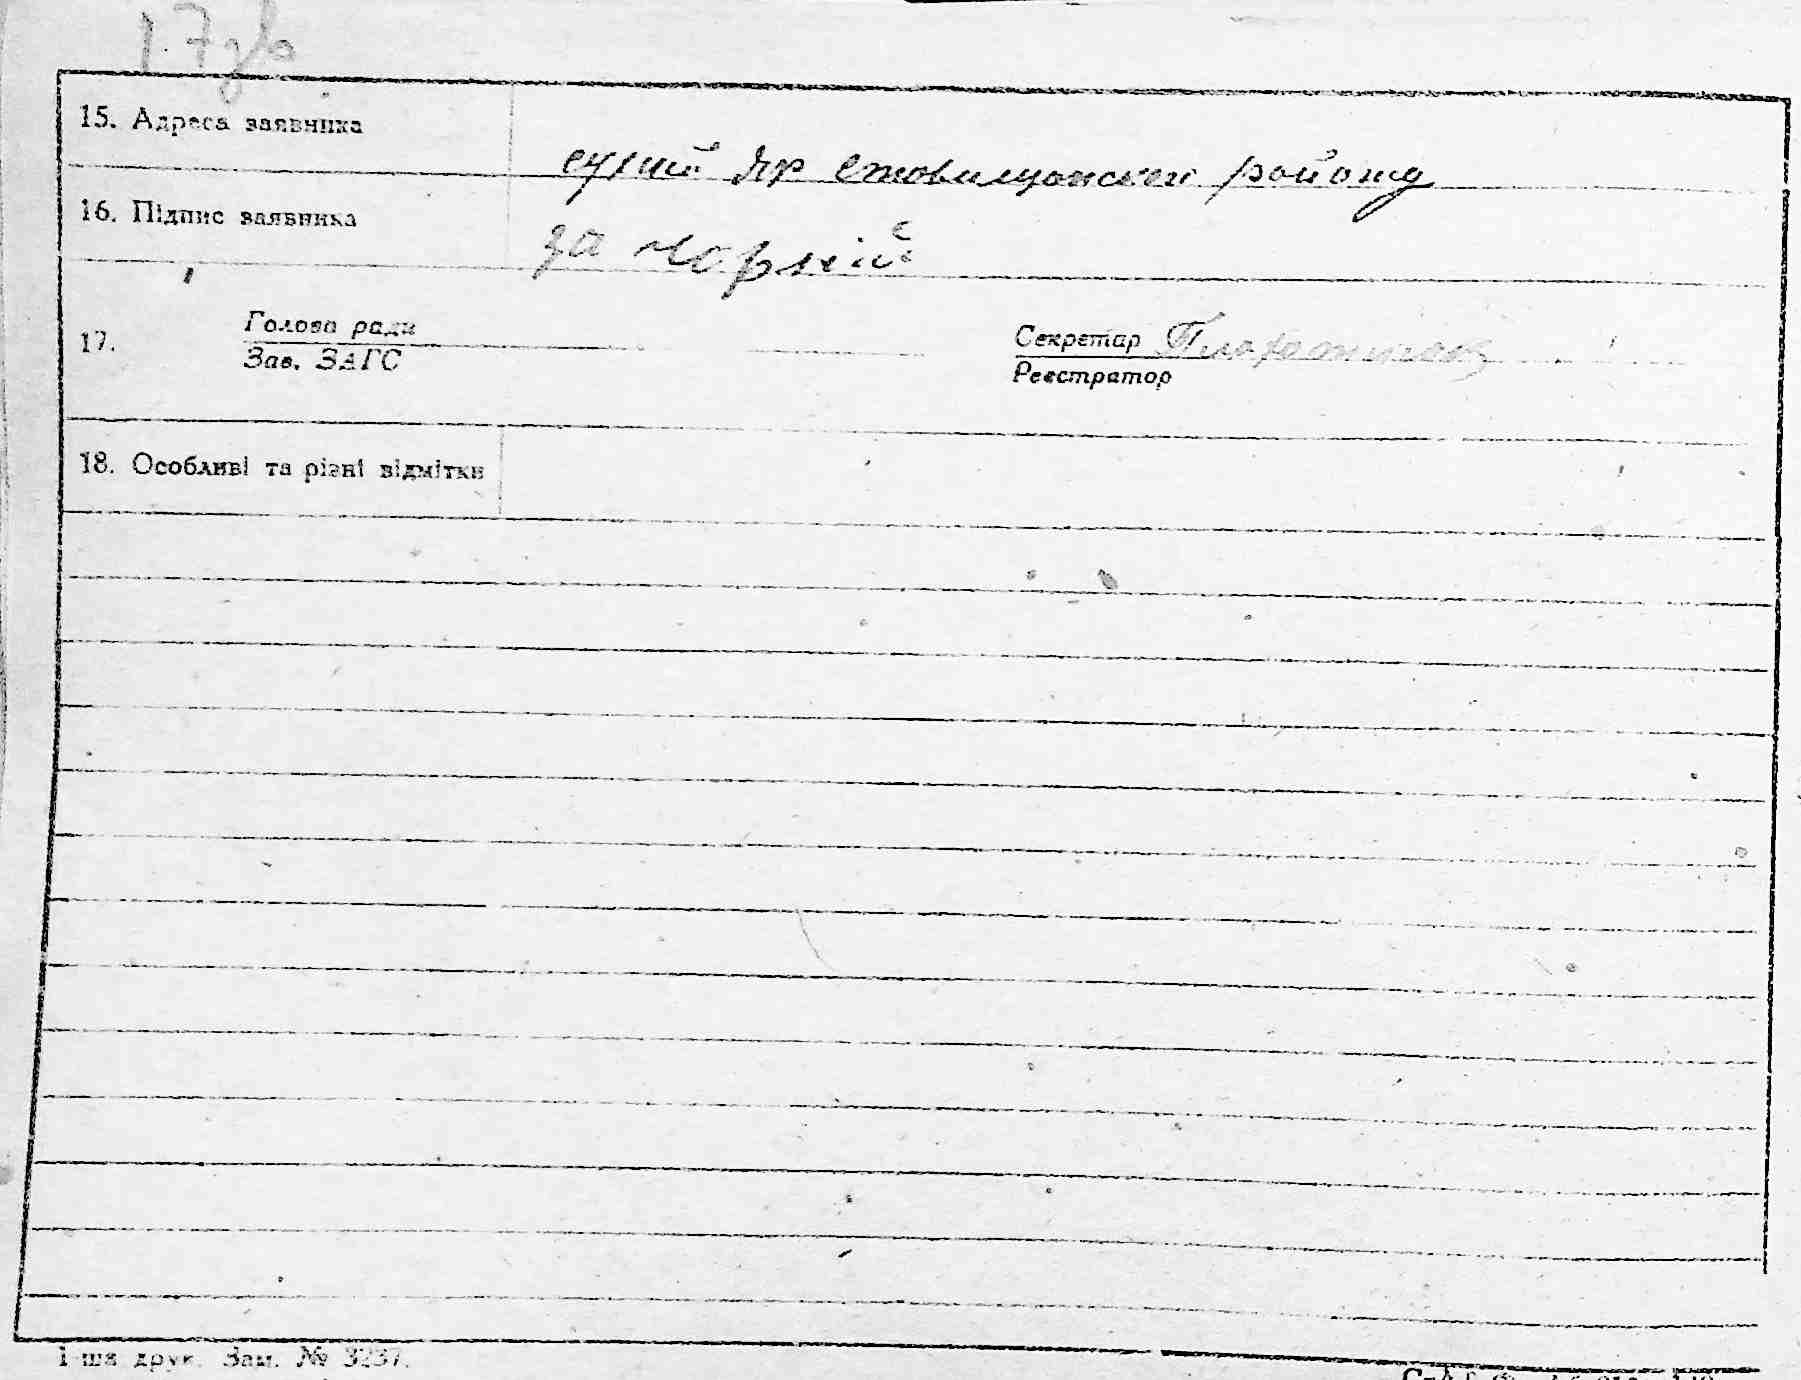 17зв
15. Адреса заявника
сухий Яр Ставищанского району
16. Підпис заявника
за чорний
17.
Голова ради
Зав. ЗАГС
Секретар
Реєстратор
18. Особливі та різні відмітки
1-ша друк. Зам. № 3237.